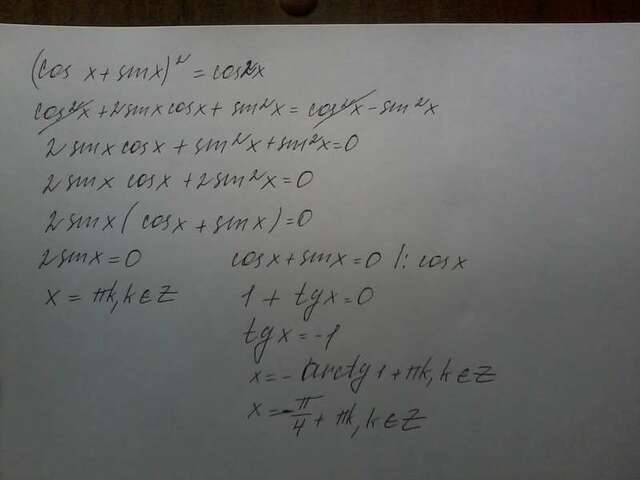 (cos x + sin x)² = cos2x
cos²x + 2 sin x cos x + sin²x = cos²x - sin²x
2 sin x cos x + sin²x + sin²x = 0
2 sin x cos x + 2 sin²x = 0
2 sin x ( cos x + sin x ) = 0
2 sin x = 0 cos x + sin x = 0 |: cos x
x = πk, k ∈ Z 1 + tg x = 0
tg x = -1
x = - arctg 1 + πk, k ∈ Z
x = - π/4 + πk, k ∈ Z